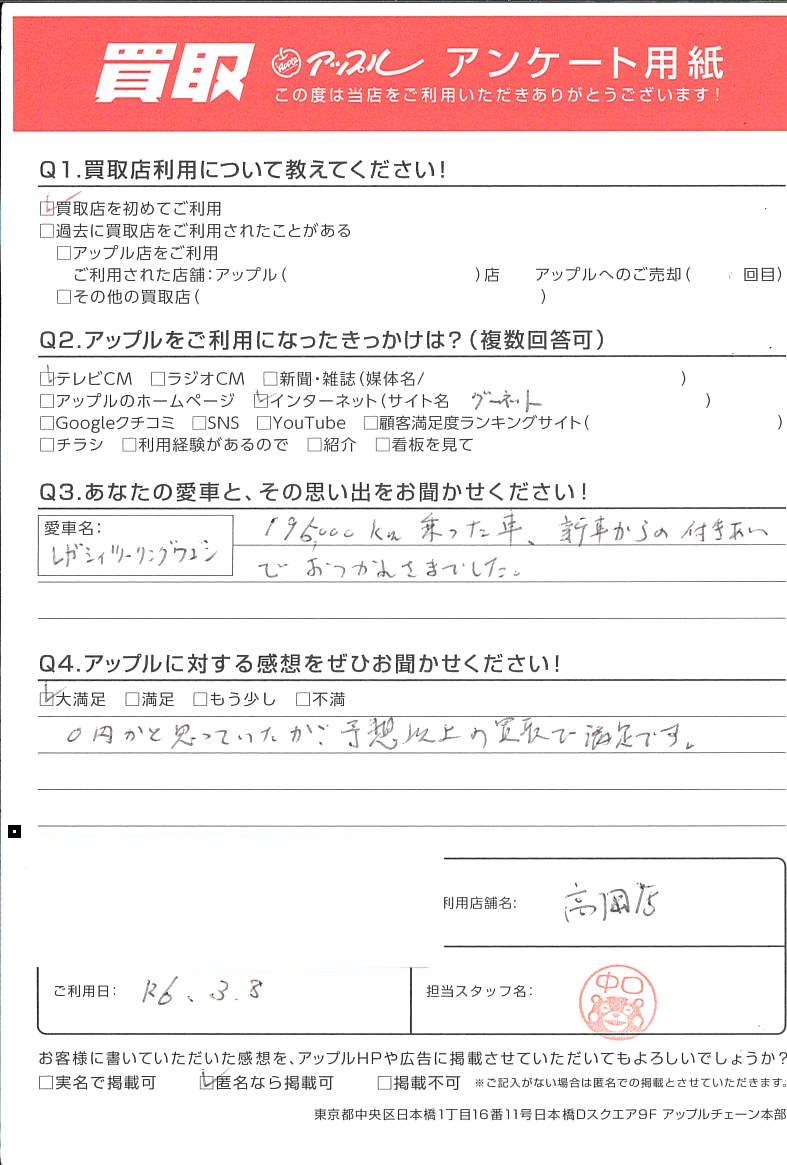 買取 Apple アップル アンケート用紙
この度は当店をご利用いただきありがとうございます！
Q1.買取店利用について教えてください！
☑買取店を初めてご利用
□過去に買取店をご利用されたことがある
□アップル店をご利用
ご利用された店舗：アップル（ ）店 アップルへのご売却（ 回目）
□その他の買取店（ ）
Q2.アップルをご利用になったきっかけは？（複数回答可）
☑テレビCM □ラジオCM □新聞・雑誌（媒体名/ ）
□アップルのホームページ ☑インターネット（サイト名 グーネット ）
□Googleクチコミ □SNS □YouTube □顧客満足度ランキングサイト（ ）
□チラシ □利用経験があるので □紹介 □看板を見て
Q3.あなたの愛車と、その思い出をお聞かせください！
愛車名：
レガシィツーリングワゴン
195,000km乗った車、新車からの付きあい
でおつかれさまでした。
Q4.アップルに対する感想をぜひお聞かせください！
☑大満足 □満足 □もう少し □不満
0円かと思っていたが予想以上の買取で満足です。
利用店舗名： 高岡店
ご利用日： R6.3.8
担当スタッフ名： 中口
お客様に書いていただいた感想を、アップルHPや広告に掲載させていただいてもよろしいでしょうか？
□実名で掲載可 ☑匿名なら掲載可 □掲載不可 ※ご記入がない場合は匿名での掲載とさせていただきます。
東京都中央区日本橋1丁目16番11号日本橋Dスクエア9F アップルチェーン本部